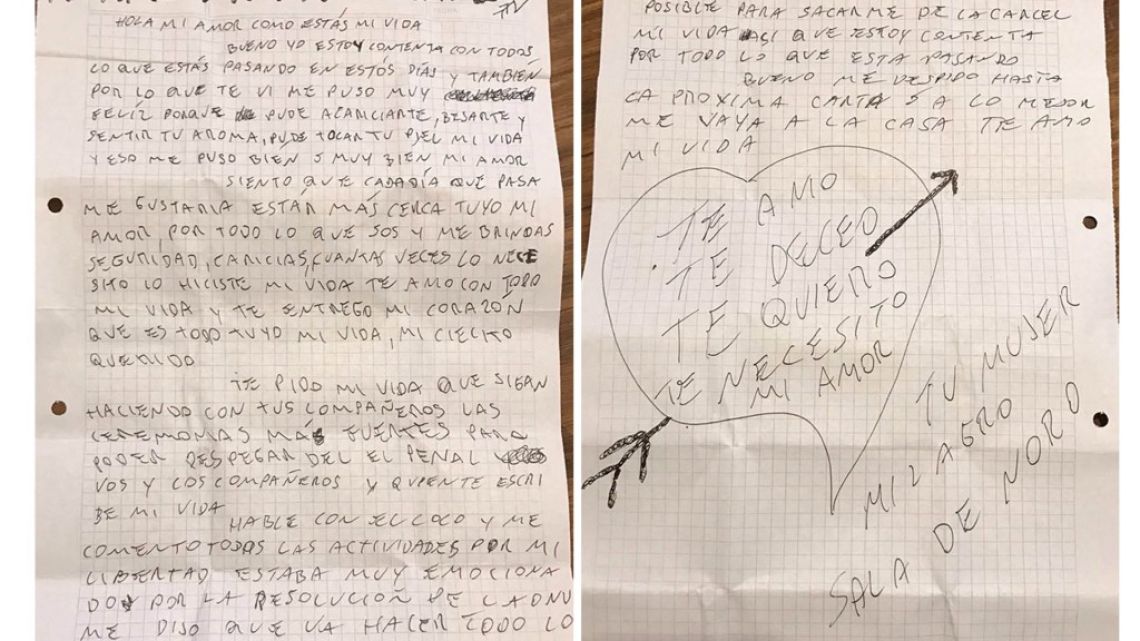 HOLA MI AMOR COMO ESTÁS MI VIDA
BUENO YO ESTOY CONTENTA CON TODOS
LO QUE ESTÁS PASANDO EN ESTÓS DÍAS Y TAMBIÉN
POR LO QUE TE VI ME PUSO MUY
FELÍZ PORQUE PUDE ACARICIARTE, BESARTE Y
SENTIR TU AROMA, PUDE TOCAR TU PIEL MI VIDA
Y ESO ME PUSO BIEN S MUY BIEN MI AMOR
SIENTO QUE CADA DÍA QUE PASA
ME GUSTARIA ESTÁR MÁS CERCA TUYO MI
AMOR, POR TODO LO QUE SOS Y ME BRINDAS
SEGURIDAD, CARICIAS, CUANTAS VECES LO NECE
SITO LO HICISTE MI VIDA TE AMO CON TODO
MI VIDA Y TE ENTREGO MI CORAZÓN
QUE ES TODO TUYO MI VIDA, MI CIELITO
QUERIDO
TE PIDO MI VIDA QUE SIGAN
HACIENDO CON TUS COMPAÑEROS LAS
CEREMONIAS MÁS FUERTES PARA
PODER DESPEGAR DEL EL PENAL
VOS Y LOS COMPAÑEROS Y QUIENTE ESCRI
BE MI VIDA
HABLE CON EL COCO Y ME
COMENTO TODAS LAS ACTIVIDADES POR MI
LIBERTAD ESTABA MUY EMOCIONA
DO POR LA RESOLUCIÓN DE LA ONU
ME DIJO QUE VA HACER TODO LO
POSIBLE PARA SACARME DE LA CARCEL
MI VIDA ASI QUE ESTOY CONTENTA
POR TODO LO QUE ESTA PASANDO
BUENO ME DESPIDO HASTA
LA PROXIMA CARTA S A LO MEJOR
ME VAYA A LA CASA TE AMO
MI VIDA
TE AMO
TE DECEO
TE QUIERO
TE NECESITO
MI AMOR
TU MUJER
MILAGRO
SALA DE NORO